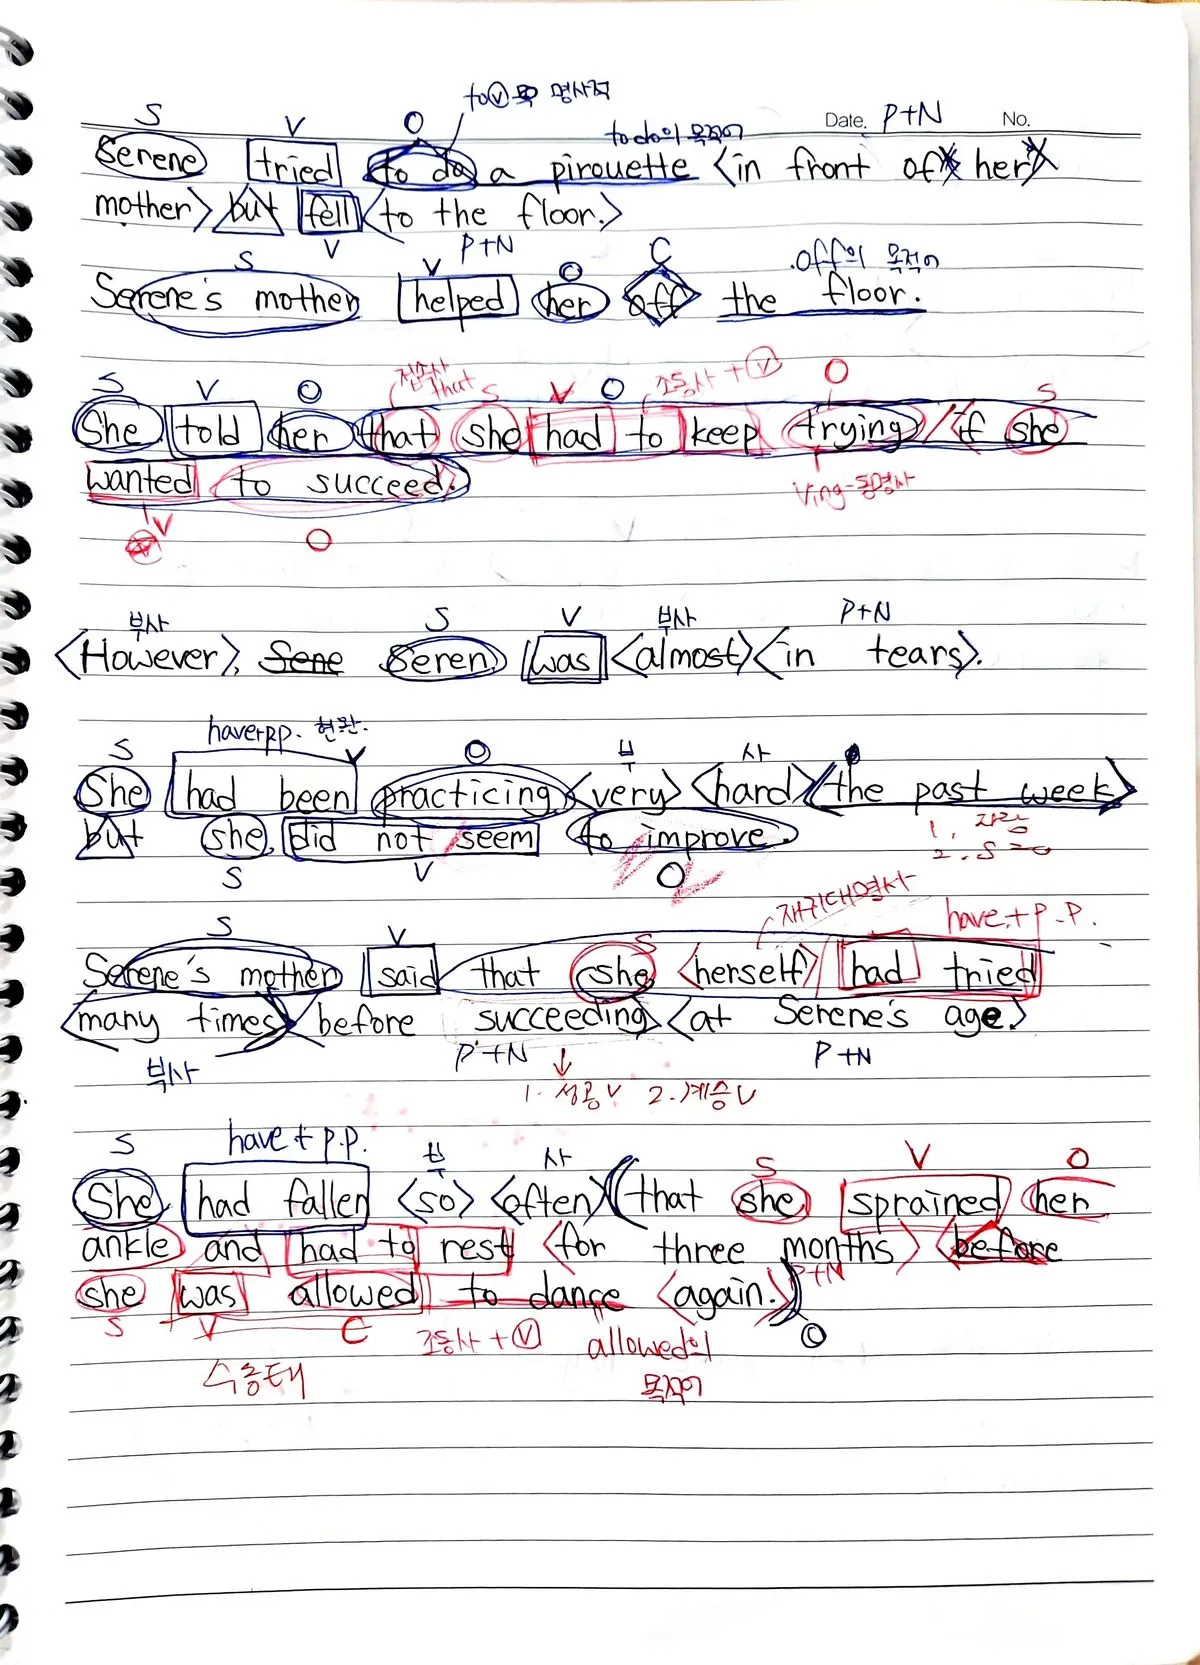 to V 목 명사적
S V O to do의 목적어 Date. P+N No.
Serene tried to do a pirouette <in front of her
mother> but fell <to the floor.>
V P+N
S V O C off의 목적어
Serene's mother helped her off the floor.
접속사 that S V 조동사 + V O S
S V O O
She told her that she had to keep trying / if she
wanted to succeed.
V O Ving-동명사
부사 S V 부사 P+N
<However>, Sene Seren was <almost> <in tears>.
have+p.p. 현완.
S V O 부 사
She had been practicing <very> <hard> <the past week>
but she did not seem to improve.
S V O
재귀대명사
S V S have + P.P.
Serene's mother said that she <herself> had tried
<many times> <before succeeding> <at Serene's age.>
부사 P+N P+N
1. 성공V 2. 계승V
S have + P.P. 부 사 S V O
She had fallen <so> <often> (that she sprained her
ankle and had to rest <for three months> <before
P+N
she was allowed to dance <again.>)
S V C 조동사 + V allowed의 O
수동태 목적어